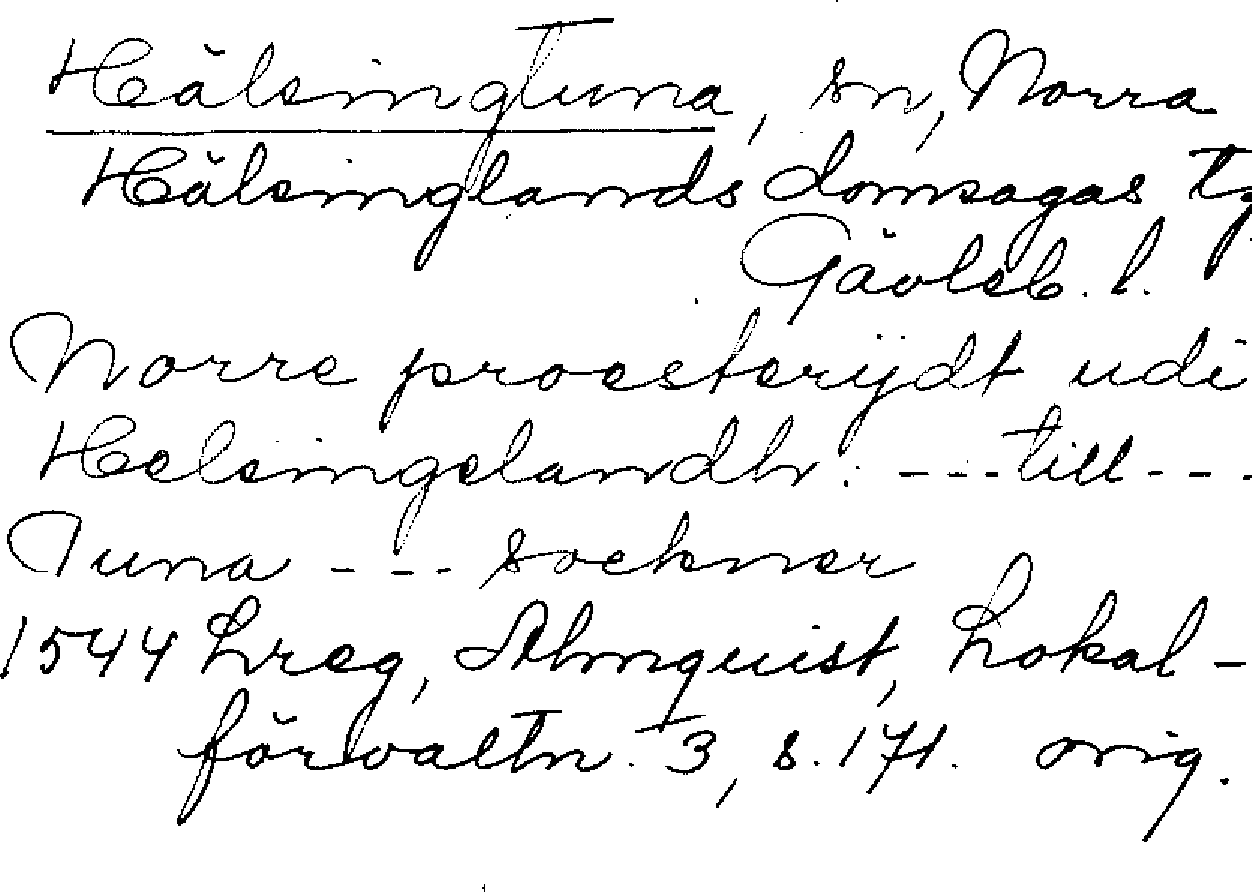 Hälsingtuna, sn, Norra
Hälsinglands domsagas tg
Gävleb. l.
Norre proesterijdt udi
Helsingelandh. --- till ---
Tuna --- sockner
1544 Lreg, Almquist, Lokal-
förvaltn. 3, s. 171. orig.